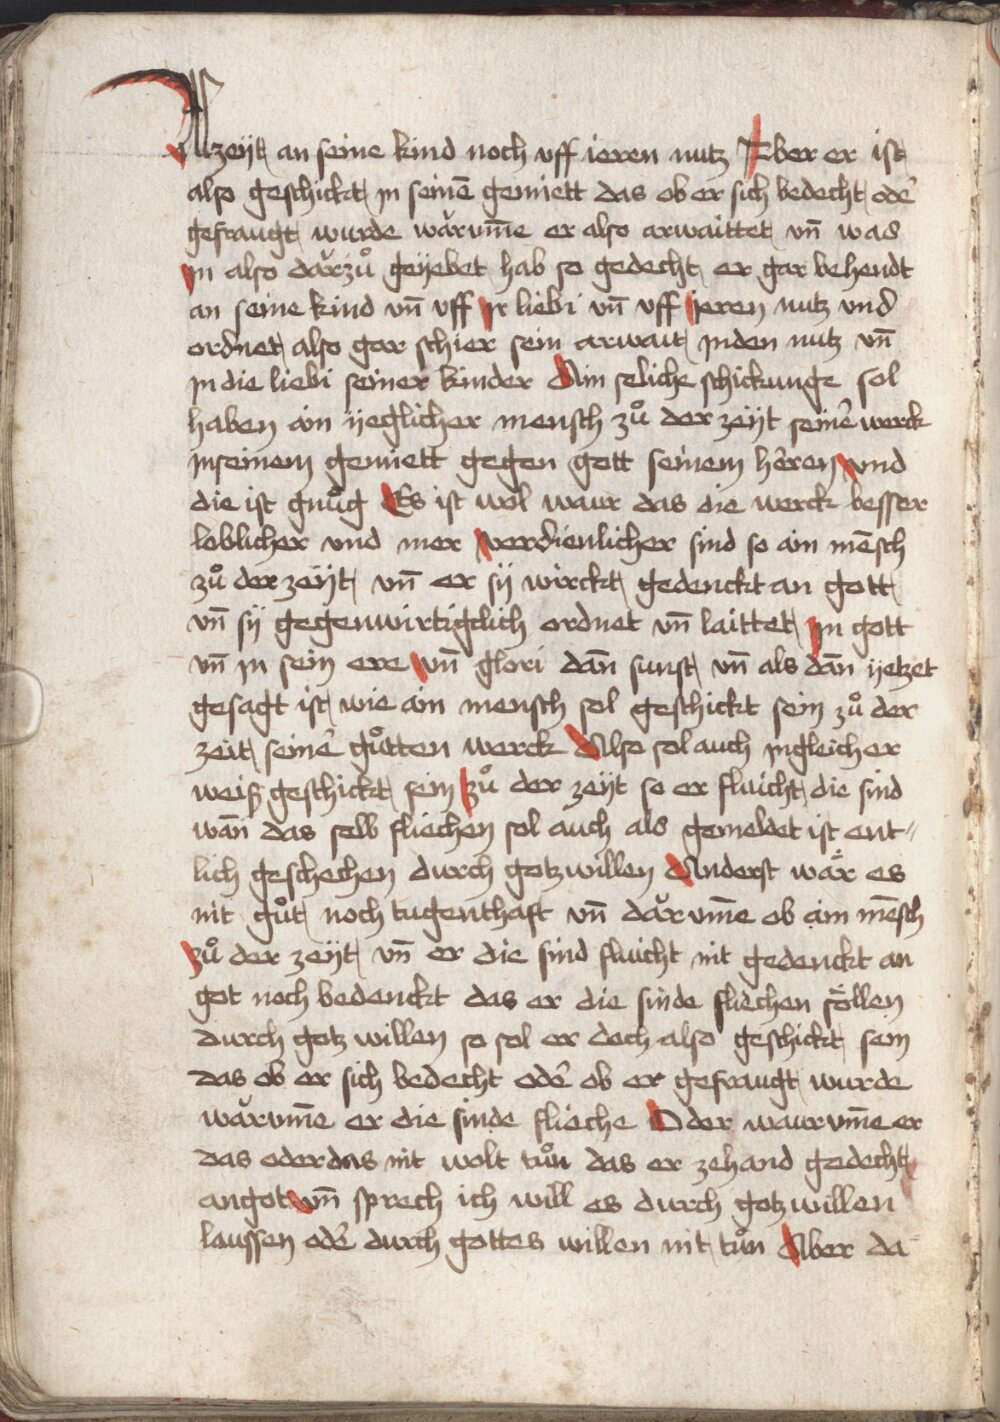 Allzeyt an seine kind noch vff ieren nutz Aber er ist
also geschickt in seinē gemiett das ob er sich bedecht odē
gefraugt wurde wārvm̄e er also arwaittet vn̄ was
in also dārzů geyebet hab so gedecht er gar behendt
an seine kind vn̄ vff ir liebi vn̄ vff ieren nutz vnd
ordnet also gar schier sein arwait inden nutz vn̄
in die liebi seiner kinder Ain seliche schickunge sol
haben ain yeglicher mensch zů der zeyt seinē werck
inseinem gemiett gegen gott seinem hēren vnd
die ist gnůg Es ist wol waur das die werck besser
loblicher vnd mer verdienlicher sind so ain mēsch
zů der zeyt vn̄ er sy wirckt gedenckt an gott
vn̄ sy gegenwirtigclich ordnet vn̄ laittet in gott
vn̄ in sein ere vn̄ glori dan̄ sunst vn̄ als dan̄ yetzet
gesagt ist wie ain mensch sol geschickt sein zů der
zeit seinē gůtten werck Also sol auch ingleicher
weiß geschickt sein zů der zeyt so er fluicht die sind
wan̄ das selb fliechen sol auch als gemeldet ist ent〃
lich geschechen durch gotz willen Anderst wār es
nit gůt noch tugenthaft vn̄ dārvm̄e ob ain mēsch
zů der zeyt vn̄ er die sind fluicht nit gedenckt an
got noch bedenckt das er die sinde fliechen söllen
durch gotz willen so sol er doch also geschickt sein
das ob er sich bedecht odē ob er gefraugt wurde
wārvm̄e er die sinde flieche Oder waurvm̄e er
das oder das nit wolt tůn das er zehand gedecht
angot vn̄ sprech ich will es durch gotz willen
laussen odē durch gottes willen nit tůn Aber da